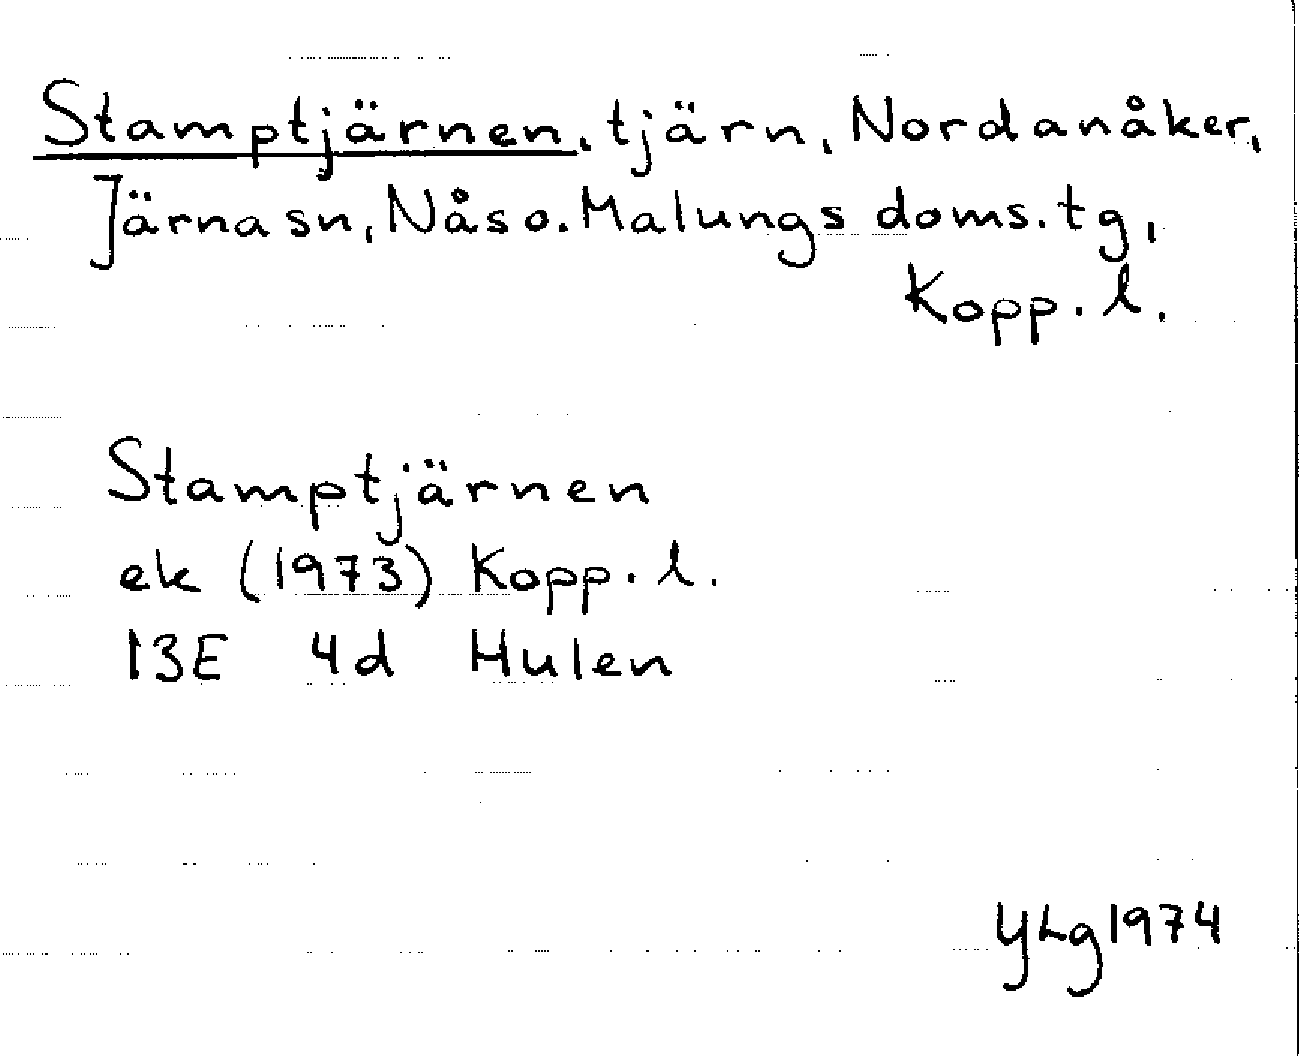 Stamptjärnen, tjärn, Nordanåker,
Järna sn, Nås o. Malungs doms. tg,
Kopp. l.
Stamptjärnen
ek (1973) Kopp. l.
13E 4d Hulen
YLg 1974